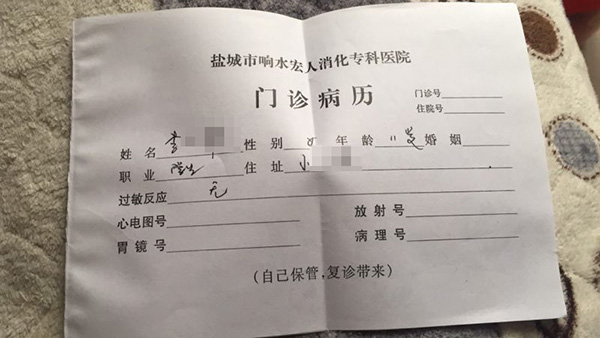 盐城市响水宏人消化专科医院
门诊病历
门诊号
住院号
姓名 李 性别 年龄 11岁 婚姻
职业 学生 住址 小
过敏反应 无
心电图号 放射号
胃镜号 病理号
(自己保管,复诊带来)